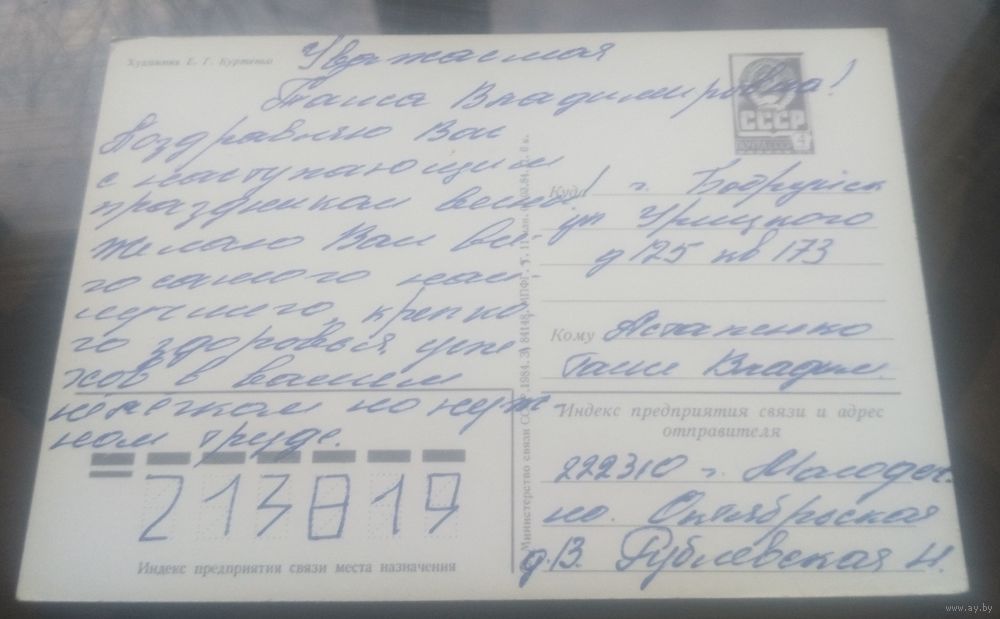 Художник Е. Г. Куртенко
Уважаемая
Таиса Владимировна!
Поздравляю Вас
с наступающим
праздником весны!
Желаю Вам все-
го самого наи-
лучшего, крепко-
го здоровья, успе
хов в вашем
нелегком но нуж-
ном труде.
СССР
4
Куда г. Бобруйск
ул Урицкого
д 125 кв 173
Кому Астапенко
Таисе Владим.
Индекс предприятия связи и адрес
отправителя
222310 г. Молодеч-
но. Октябрьская
д. 13. Рублевская Н.
213819
Индекс предприятия связи места назначения
Министерство связи СССР. 1984. З. 84148. МПФГ.
www.ay.by